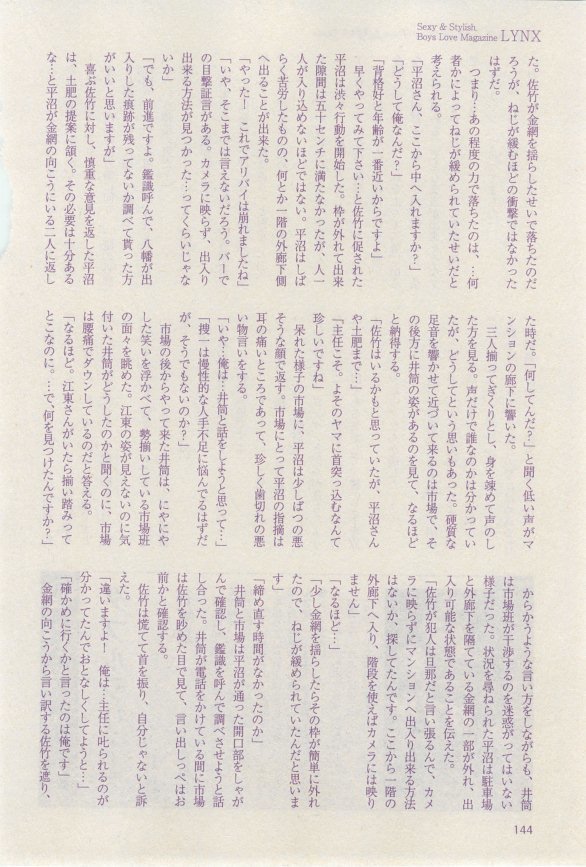 Sexy & Stylish
Boys Love Magazine LYNX
た。佐竹が金網を揺らしたせいで落ちたのだ
ろうが、ねじが緩むほどの衝撃ではなかった
はずだ。
つまり…あの程度の力で落ちたのは、…何
者かによってねじが緩められていたせいだと
考えられる。
「平沼さん、ここから中へ入れますか？」
「どうして俺なんだ？」
「背格好と年齢が一番近いからですよ」
早くやってみて下さい…と佐竹に促された
平沼は渋々行動を開始した。枠が外れて出来
た隙間は五十センチに満たなかったが、人一
人が入り込めないほどではない。平沼はしば
らく苦労したものの、何とか一階の外廊下側
へ出ることが出来た。
「やったー！　これでアリバイは崩れましたね」
「いや、そこまでは言えないだろう。バーで
の目撃証言がある。カメラに映らず、出入り
出来る方法が見つかった…ってくらいじゃな
いか」
「でも、前進ですよ。鑑識呼んで、八幡が出
入りした痕跡が残ってないか調べて貰った方
がいいと思いますが」
喜ぶ佐竹に対し、慎重な意見を返した平沼
は、土肥の提案に頷く。その必要は十分ある
な…と平沼が金網の向こうにいる二人に返し
た時だ。「何してんだ？」と聞く低い声がマ
ンションの廊下に響いた。
三人揃ってぎくりとし、身を竦めて声のし
た方を見る。声だけで誰なのかは分かってい
たが、どうしてという思いもあった。硬質な
足音を響かせて近づいて来るのは市場で、そ
の後方に井筒の姿があるのを見て、なるほど
と納得する。
「佐竹はいるかもと思っていたが、平沼さん
や土肥まで…」
「主任こそ。よそのヤマに首突っ込むなんて
珍しいですね」
呆れた様子の市場に、平沼は少しばつの悪
そうな顔で返す。市場にとって平沼の指摘は
耳の痛いところであって、珍しく歯切れの悪
い物言いをする。
「いや…俺は…井筒と話をしようと思って…」
「捜一は慢性的な人手不足に悩んでるはずだ
が、そうでもないのか？」
市場の後からやって来た井筒は、にやにや
した笑いを浮かべて、勢揃いしている市場班
の面々を眺めた。江東の姿が見えないのに気
付いた井筒がどうしたのかと聞くのに、市場
は腰痛でダウンしているのだと答える。
「なるほど。江東さんがいたら揃い踏みって
とこなのに。…で、何を見つけたんですか？」
からかうような言い方をしながらも、井筒
は市場班が干渉するのを迷惑がってはいない
様子だった。状況を尋ねられた平沼は駐車場
と外廊下を隔てている金網の一部が外れ、出
入り可能な状態であることを伝えた。
「佐竹が犯人は旦那だと言い張るんで、カメ
ラに映らずにマンションへ出入り出来る方法
はないか、探してたんです。ここから一階の
外廊下へ入り、階段を使えばカメラには映り
ません」
「なるほど…」
「少し金網を揺らしたらその枠が簡単に外れ
たので、ねじが緩められていたんだと思いま
す」
「締め直す時間がなかったのか」
井筒と市場は平沼が通った開口部をしゃが
んで確認し、鑑識を呼んで調べさせようと話
し合った。井筒が電話をかけている間に市場
は佐竹を眇めた目で見て、言い出しっぺはお
前かと確認する。
佐竹は慌てて首を振り、自分じゃないと訴
えた。
「違いますよ！　俺は…主任に叱られるのが
分かってたんでおとなしくしてようと…」
「確かめに行くかと言ったのは俺です」
金網の向こうから言い訳する佐竹を遮り、
144